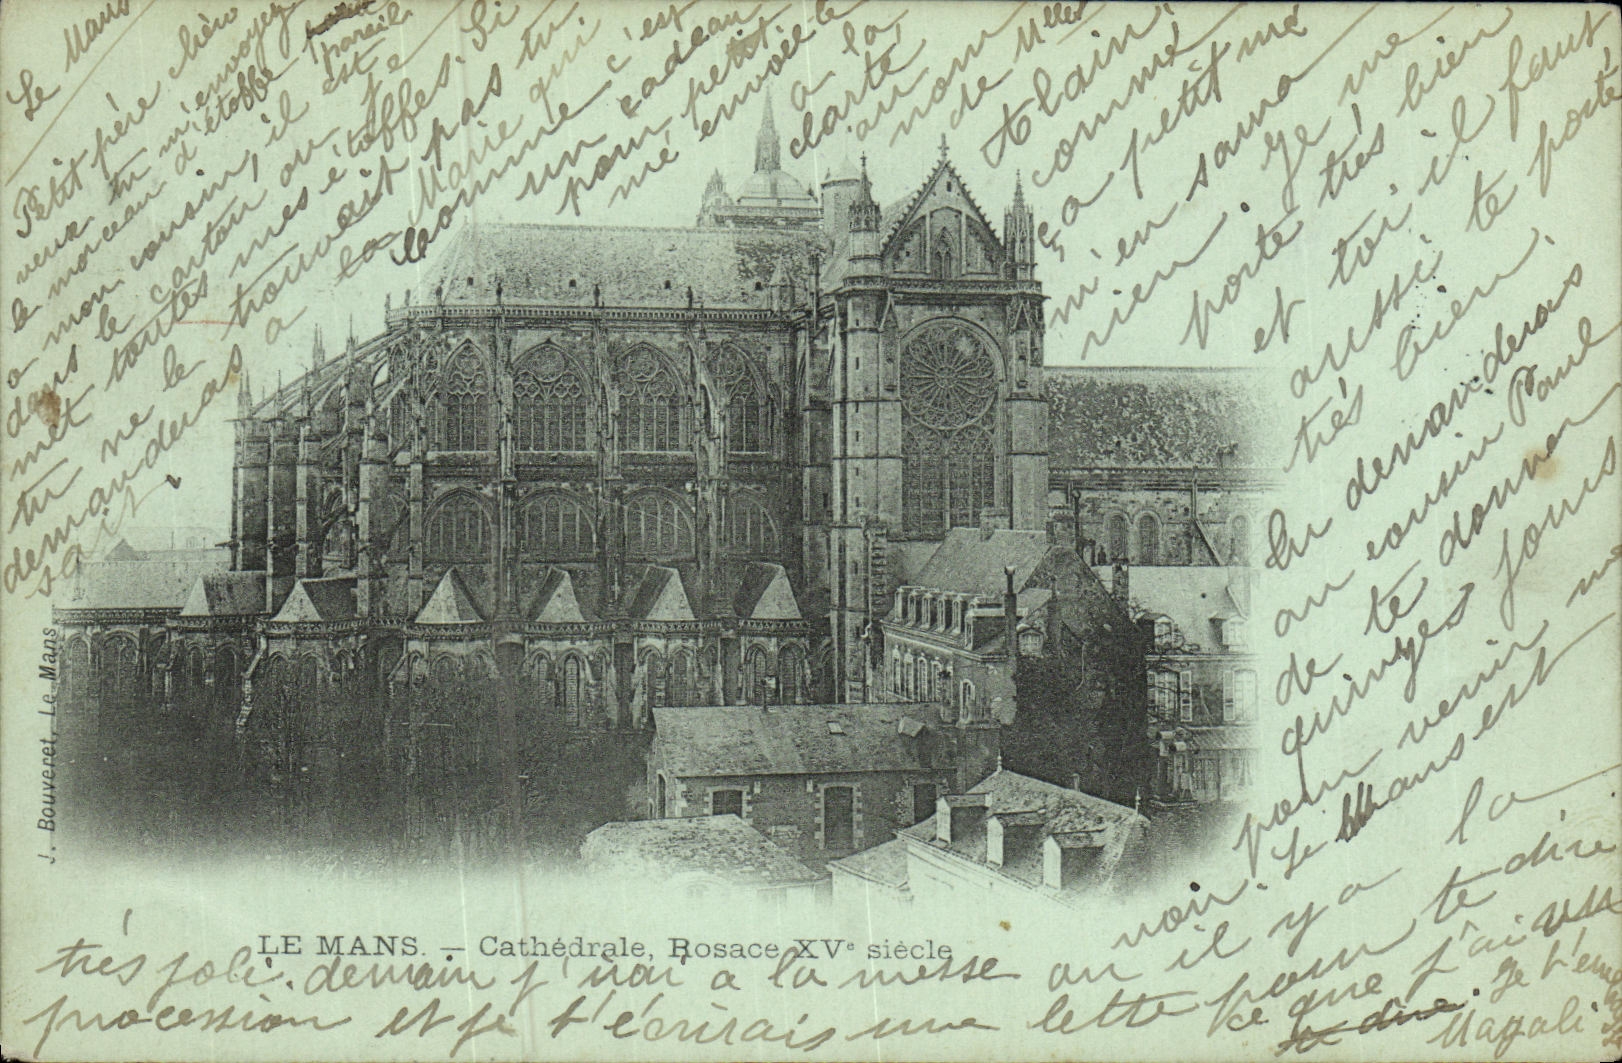 Le Mans
Petit père chéri
veux tu m'envoyez
le morceau d'étoffe pareil
a mon cousin, il est
dans le carton ou je
met toutes mes étoffes. Si
tu ne le trouvait pas tu
demanderas a la Marie qui
sait.
a la bonne c'est
un cadeau
pour petit
mé envoié le
a la
clarté
au nom
de Mlles
Alain.
comme
ça petit mé
m'en saura
rien. Je me
porte très bien
et toi il faut
aussi te porté
trés bien.
tu demanderas
au cousin Paul
de te donner
quinzes jours
pour venir m
voir. Le Mans est
trés joli. demain j'irai a la messe ou il y a la
procession et je t'écrirais une lettre pour te dire
ce que j'ai vu
te dire. Je t'embrasse
Magali
LE MANS. — Cathédrale, Rosace XVe siècle
J. Bouveret, Le Mans